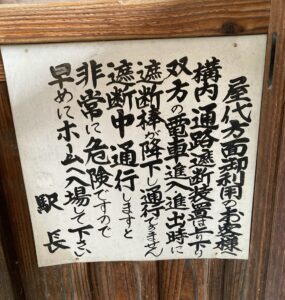 屋代方面御利用のお客様へ
構内通路遮断装置は上り下り
双方の電車進入進出時に
遮断棒が降下し通行できません
遮断中通行しますと
非常に危険ですので
早めにホームへ入場して下さい
駅長